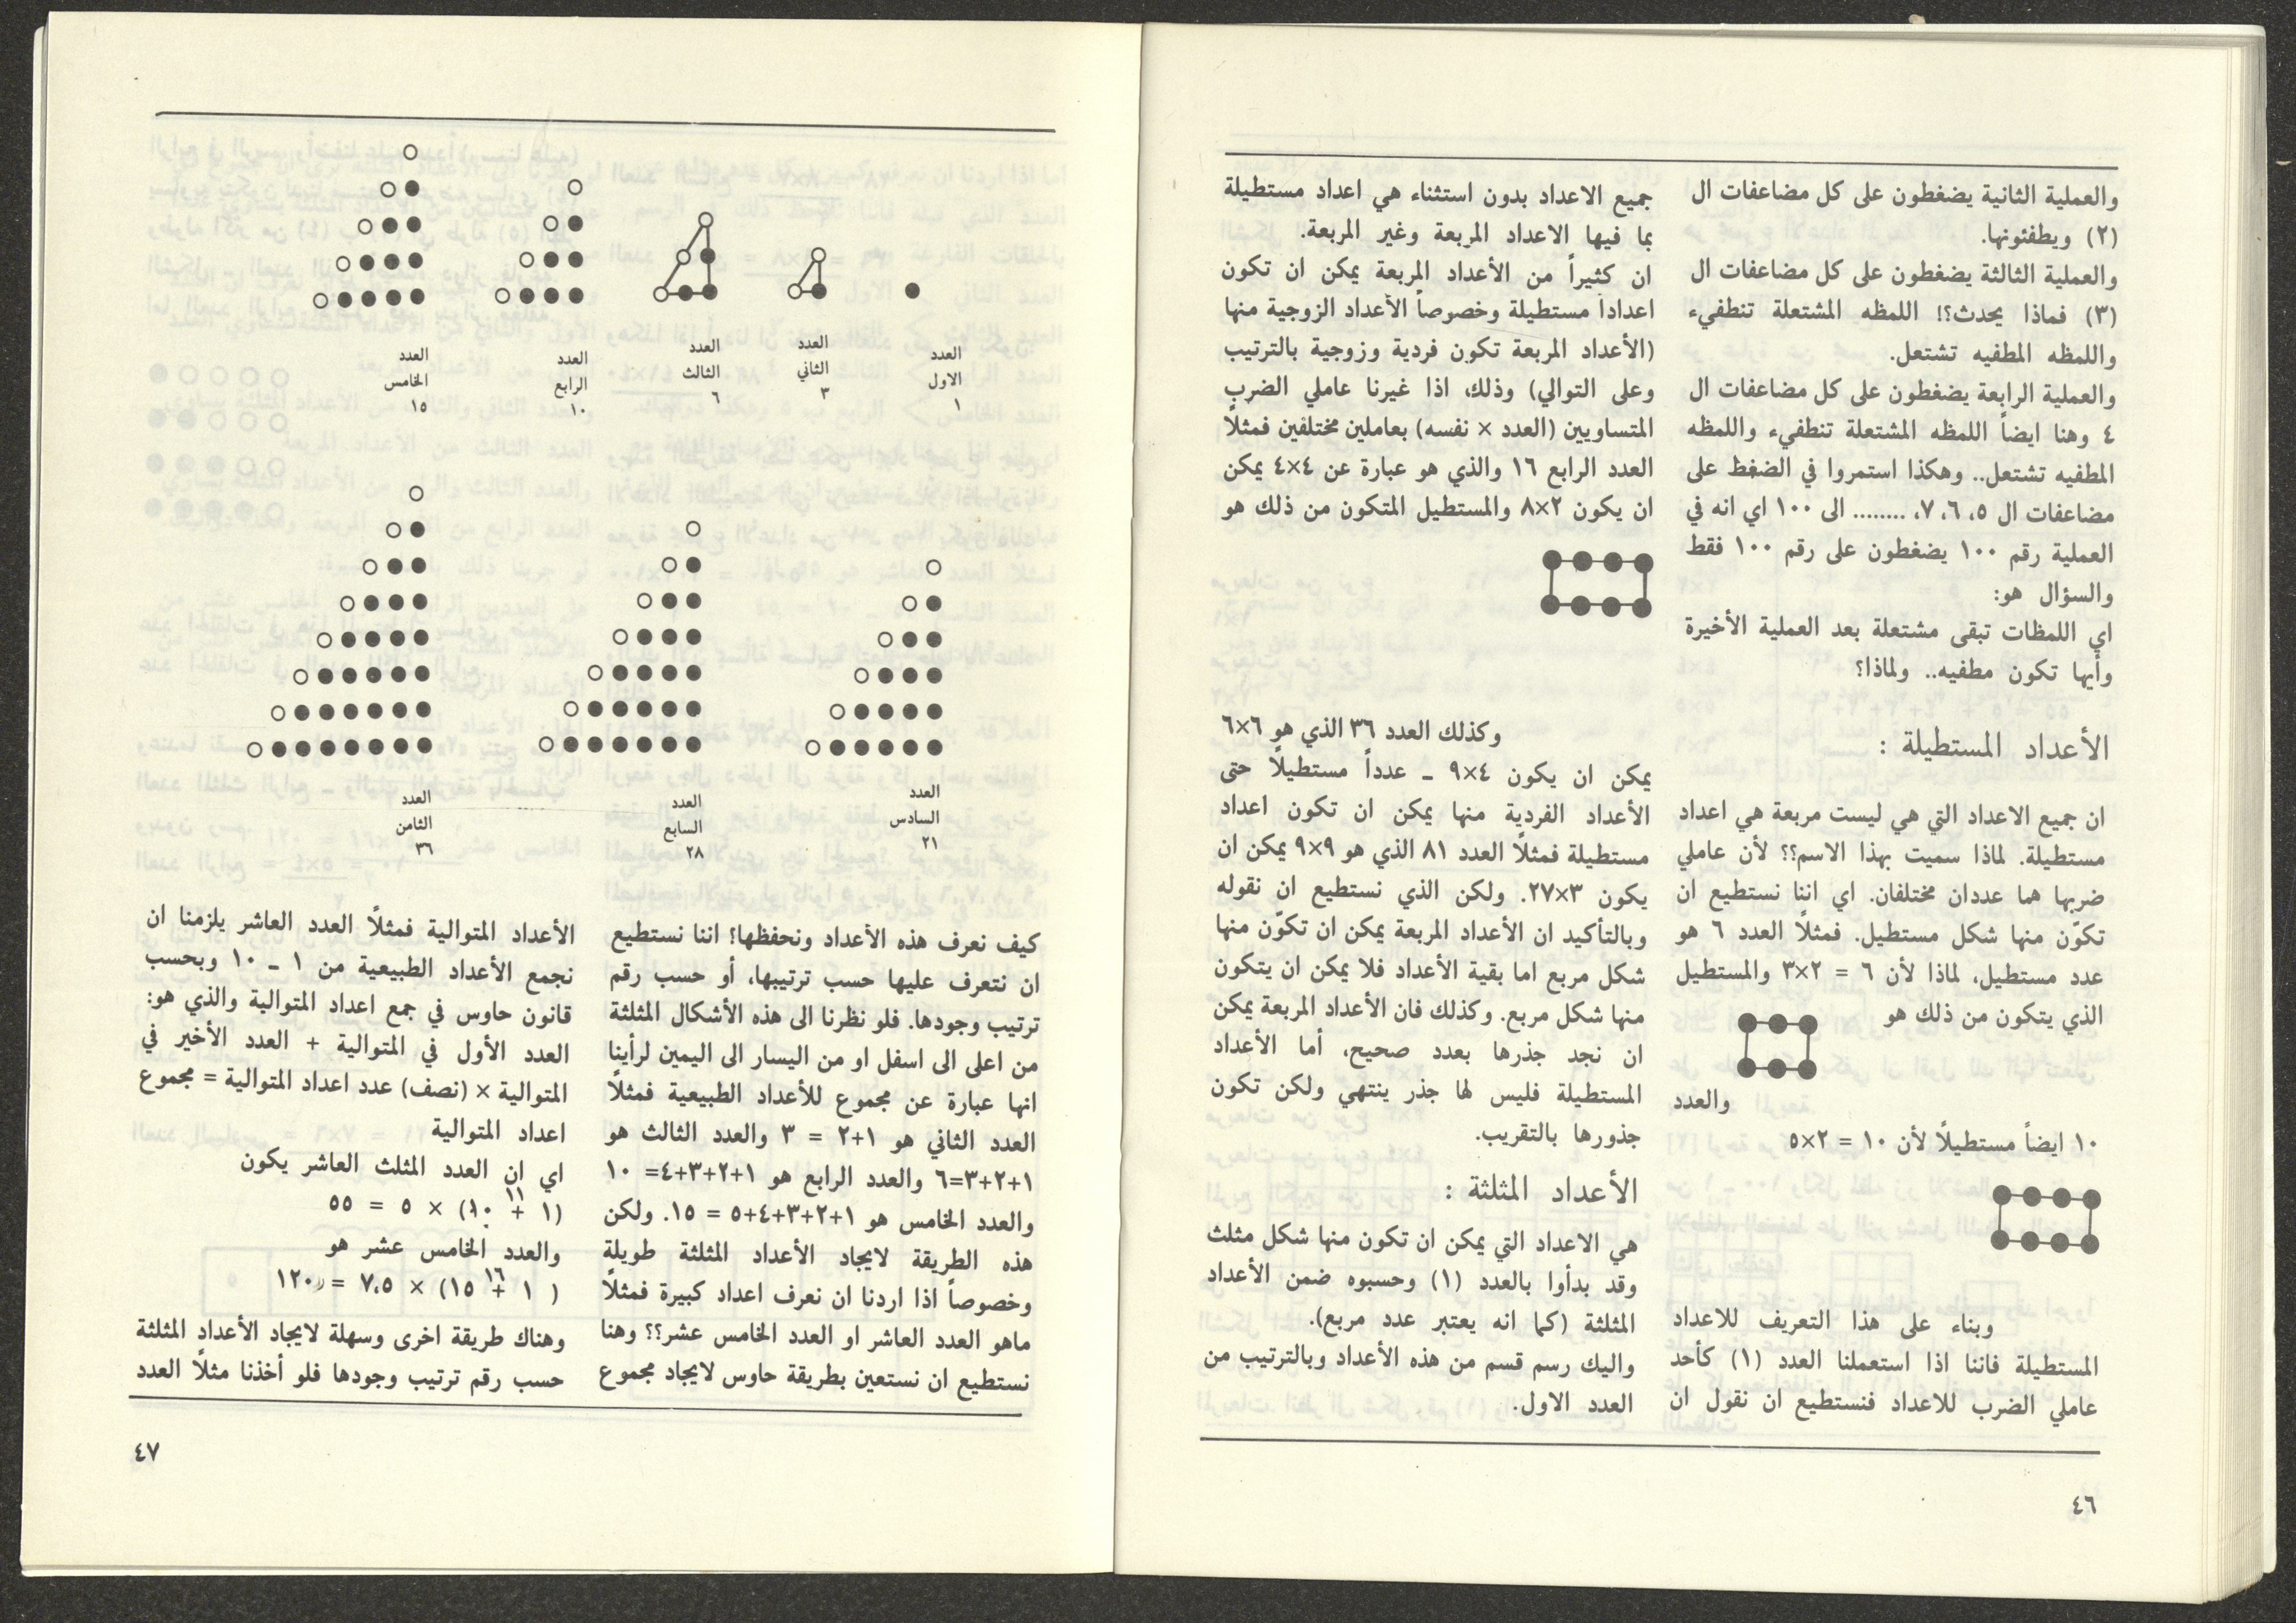 والعملية الثانية يضغطون على كل مضاعفات ال
(٢) ويطفئونها.
والعملية الثالثة يضغطون على كل مضاعفات ال
(٣) فماذا يحدث؟! اللمظه المشتعلة تنطفيء
واللمظه المطفيه تشتعل.
والعملية الرابعة يضغطون على كل مضاعفات ال
٤ وهنا ايضاً اللمظه المشتعلة تنطفيء واللمظه
المطفيه تشتعل.. وهكذا استمروا في الضغظ على
مضاعفات ال ٥، ٦، ٧، ........ الى ١٠٠ اي انه في
العملية رقم ١٠٠ يضغطون على رقم ١٠٠ فقط
والسؤال هو:
اي اللمظات تبقى مشتعلة بعد العملية الأخيرة
وأيها تكون مطفيه.. ولماذا؟
الأعداد المستطيلة :
ان جميع الاعداد التي هي ليست مربعة هي اعداد
مستطيلة. لماذا سميت بهذا الاسم؟؟ لأن عاملي
ضربها هما عددان مختلفان. اي اننا نستطيع ان
تكوّن منها شكل مستطيل. فمثلاً العدد ٦ هو
عدد مستطيل، لماذا لأن ٦ = ٢×٣ والمستطيل
الذي يتكون من ذلك هو
والعدد
١٠ ايضاً مستطيلاً لأن ١٠ = ٢×٥
وبناء على هذا التعريف للاعداد
المستطيلة فاننا اذا استعملنا العدد (١) كأحد
عاملي الضرب للاعداد فنستطيع ان نقول ان
جميع الاعداد بدون استثناء هي اعداد مستطيلة
بما فيها الاعداد المربعة وغير المربعة.
ان كثيراً من الأعداد المربعة يمكن ان تكون
اعداداً مستطيلة وخصوصاً الأعداد الزوجية منها
(الأعداد المربعة تكون فردية وزوجية بالترتيب
وعلى التوالي) وذلك، اذا غيرنا عاملي الضرب
المتساويين (العدد × نفسه) بعاملين مختلفين فمثلاً
العدد الرابع ١٦ والذي هو عبارة عن ٤×٤ يمكن
ان يكون ٢×٨ والمستطيل المتكون من ذلك هو
وكذلك العدد ٣٦ الذي هو ٦×٦
يمكن ان يكون ٤×٩ ـ عدداً مستطيلاً حتى
الأعداد الفردية منها يمكن ان تكون اعداد
مستطيلة فمثلاً العدد ٨١ الذي هو ٩×٩ يمكن ان
يكون ٣×٢٧. ولكن الذي نستطيع ان نقوله
وبالتأكيد ان الأعداد المربعة يمكن ان تكوّن منها
شكل مربع اما بقية الأعداد فلا يمكن ان يتكون
منها شكل مربع. وكذلك فان الأعداد المربعة يمكن
ان نجد جذرها بعدد صحيح، أما الأعداد
المستطيلة فليس لها جذر ينتهي ولكن تكون
جذورها بالتقريب.
الأعداد المثلثة :
هي الاعداد التي يمكن ان تكون منها شكل مثلث
وقد بدأوا بالعدد (١) وحسبوه ضمن الأعداد
المثلثة (كما انه يعتبر عدد مربع).
واليك رسم قسم من هذه الأعداد وبالترتيب من
العدد الاول.
٤٦
العدد
الاول
١
العدد
الثاني
٣
العدد
الثالث
٦
العدد
الرابع
١٠
العدد
الخامس
١٥
العدد
السادس
٢١
العدد
السابع
٢٨
العدد
الثامن
٣٦
كيف نعرف هذه الأعداد ونحفظها؟ اننا نستطيع
ان نتعرف عليها حسب ترتيبها، أو حسب رقم
ترتيب وجودها. فلو نظرنا الى هذه الأشكال المثلثة
من اعلى الى اسفل او من اليسار الى اليمين لرأينا
انها عبارة عن مجموع للأعداد الطبيعية فمثلاً
العدد الثاني هو ١+٢ = ٣ والعدد الثالث هو
١+٢+٣=٦ والعدد الرابع هو ١+٢+٣+٤= ١٠
والعدد الخامس هو ١+٢+٣+٤+٥ = ١٥. ولكن
هذه الطريقة لايجاد الأعداد المثلثة طويلة
وخصوصاً اذا اردنا ان نعرف اعداد كبيرة فمثلاً
ماهو العدد العاشر او العدد الخامس عشر؟؟ وهنا
نستطيع ان نستعين بطريقة حاوس لايجاد مجموع
الأعداد المتوالية فمثلاً العدد العاشر يلزمنا ان
نجمع الأعداد الطبيعية من ١ ـ ١٠ وبحسب
قانون حاوس في جمع اعداد المتوالية والذي هو:
العدد الأول في المتوالية + العدد الأخير في
المتوالية × (نصف) عدد اعداد المتوالية = مجموع
اعداد المتوالية
اي ان العدد المثلث العاشر يكون
١١
(١ + ١٠) × ٥ = ٥٥
والعدد الخامس عشر هو
١٦
( ١ + ١٥) × ٧،٥ = ١٢٠
وهناك طريقة اخرى وسهلة لايجاد الأعداد المثلثة
حسب رقم ترتيب وجودها فلو أخذنا مثلاً العدد
٤٧